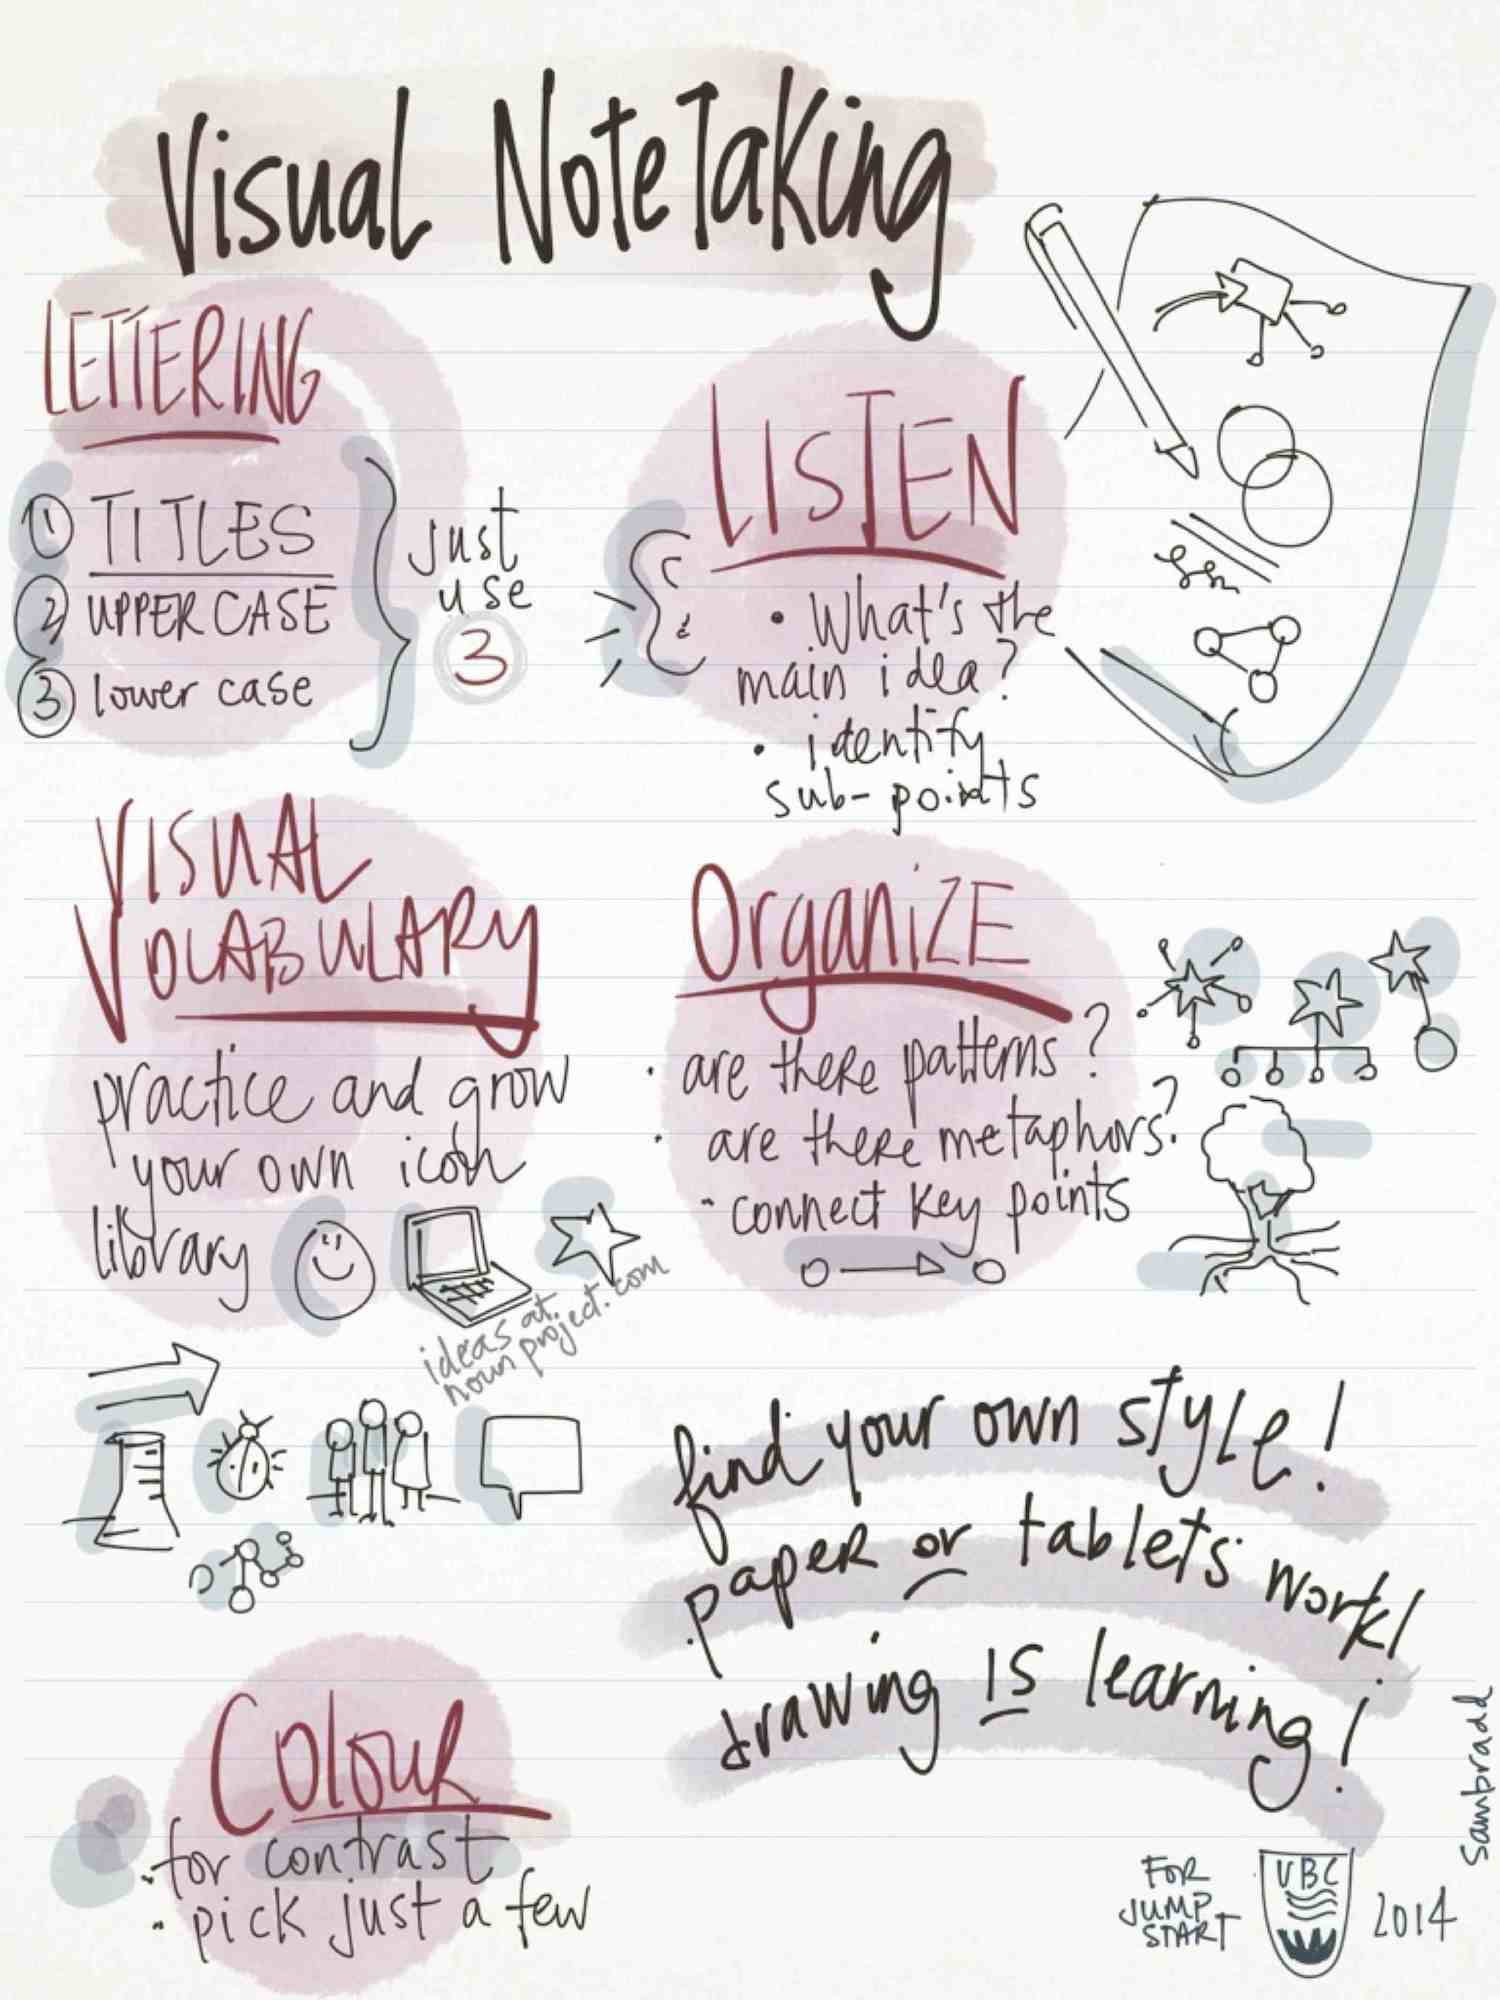 Visual NoteTaking
LETTERING
1 TITLES
2 UPPER CASE
3 lower case
just
use
3
LISTEN
• What's the
main idea?
• identify
sub-points
VISUAL
VOCABULARY
practice and grow
your own icon
library
ideas at
nounproject.com
OrganizE
• are there patterns?
• are there metaphors?
- connect key points
find your own style!
paper or tablets work!
drawing IS learning!
Colour
• for contrast
• pick just a few
FOR
JUMP
START
UBC
2014
sambradd